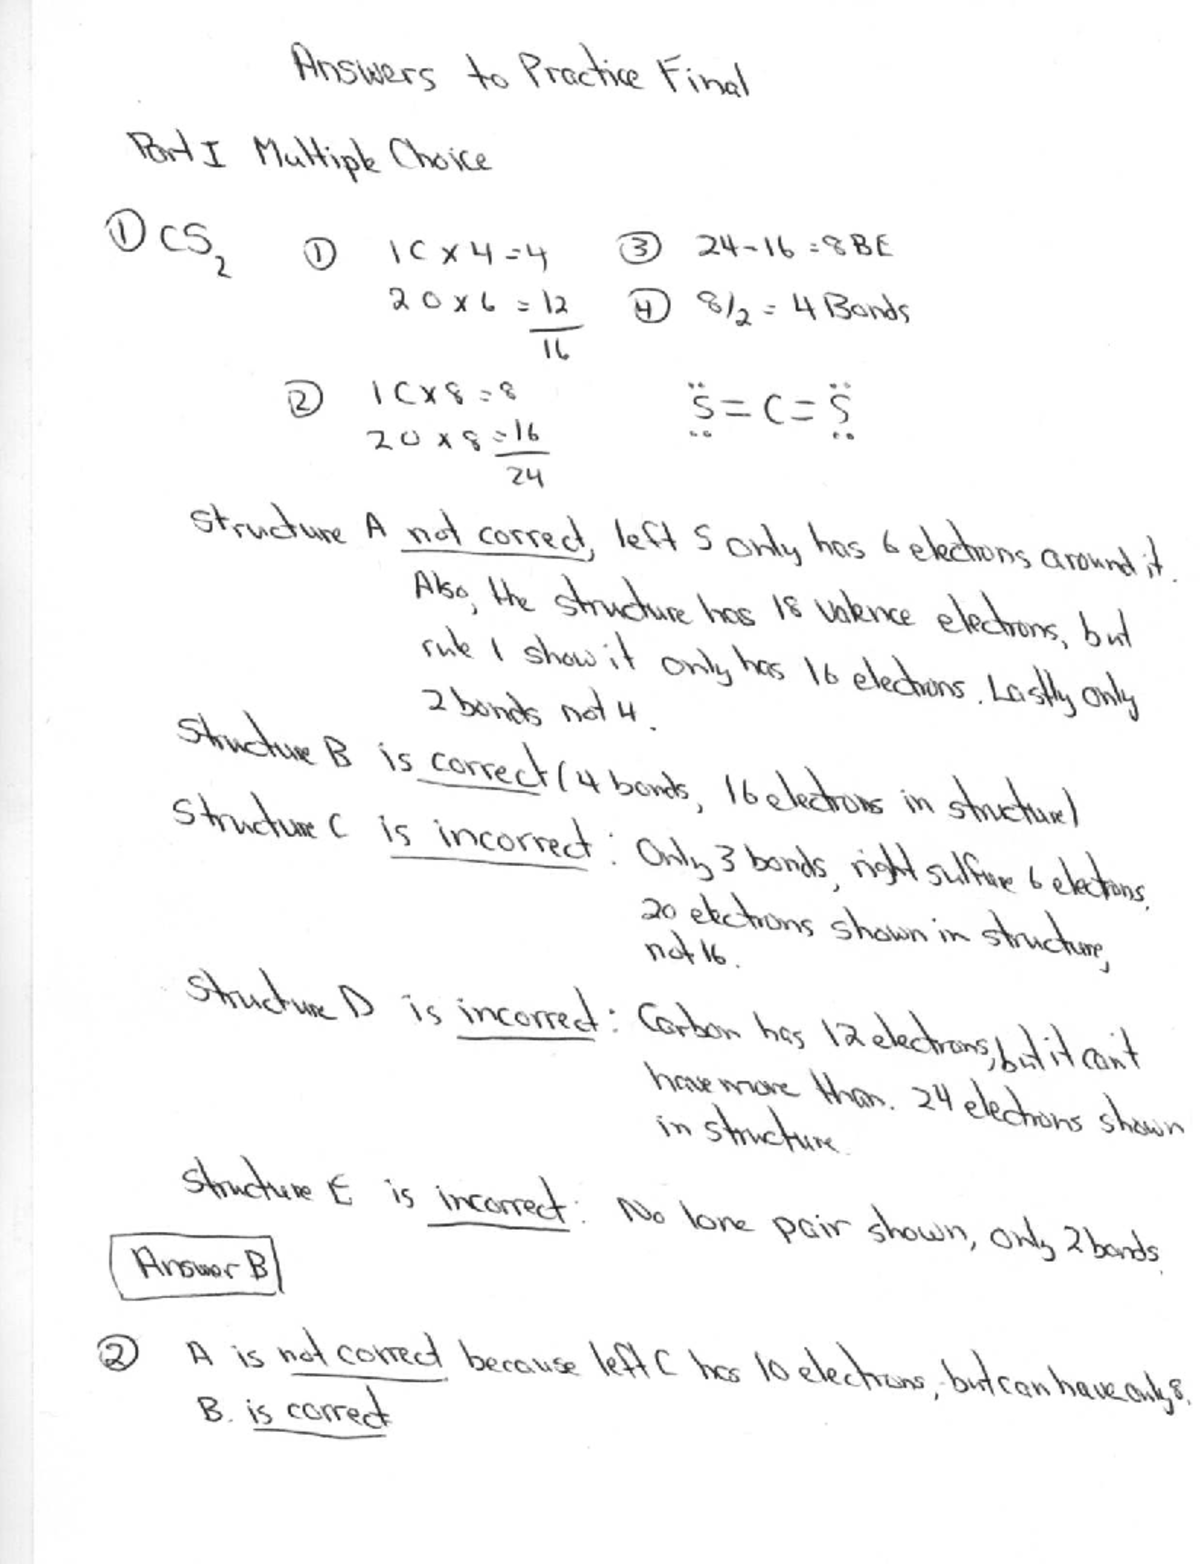 Answers to Practice Final
Part I Multiple Choice
① CS₂ ① 1C x 4 = 4 ③ 24-16 = 8 BE
2O x 6 = 12 ④ 8/2 = 4 Bonds
16
② 1C x 8 = 8 S=C=S
2O x 8 = 16
24
Structure A not correct, left S only has 6 electrons around it.
Also, the structure has 18 valence electrons, but
rule 1 show it only has 16 electrons. Lastly only
2 bonds not 4.
Structure B is correct (4 bonds, 16 electrons in structure)
Structure C is incorrect: Only 3 bonds, right sulfure 6 electrons.
20 electrons shown in structure,
not 16.
Structure D is incorrect: Carbon has 12 electrons, but it can't
have more than. 24 electrons shown
in structure.
Structure E is incorrect: No lone pair shown, only 2 bonds.
Answer B
② A is not correct because left C has 10 electrons, but can have only 8.
B. is correct